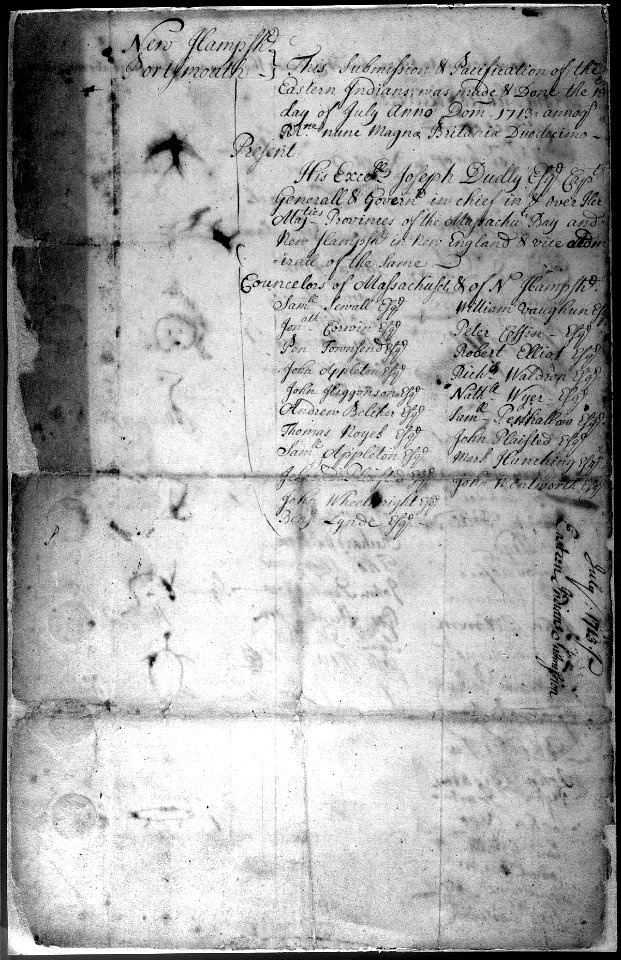 New Hampshr
Portsmouth } This Submission & Pacification of the
Eastern Indians, was made & Done the 13th
day of July Anno Dom. 1713. annoqe
RRnæ nunc Magnæ Britaniæ Duodecimo -
Present
His Excelcy Joseph Dudly Esqr Capt
Generall & Governr in chief in & over Her
Majties Provinces of the Massachuts Bay and
New Hampshr in New England & vice adm
irall of the same
Councelors of Massachusts, & of Nw Hampshr.
Samll Sewall Esqr
Jonath Corwin Esqr
Pen Townsend Esqr
John Appleton Esqr
John Higgonson Esqr
Andrew Belcher Esqr
Thomas Noyes Esqr
Samll Appleton Esqr
Esqr
John Wheelwright Esqr
Benj Lynde Esqr
William Vaughun Esqr
Peter Coffin - Esqr
Robert Elliot Esqr
Richd Waldron Esqr
Nathll Wyer Esqr
Samll Penhallow Esqr
John Plaisted Esqr
Mark Hunking Esqr
John Wentworth Esqr
July 1713
Eastern Indians Submission